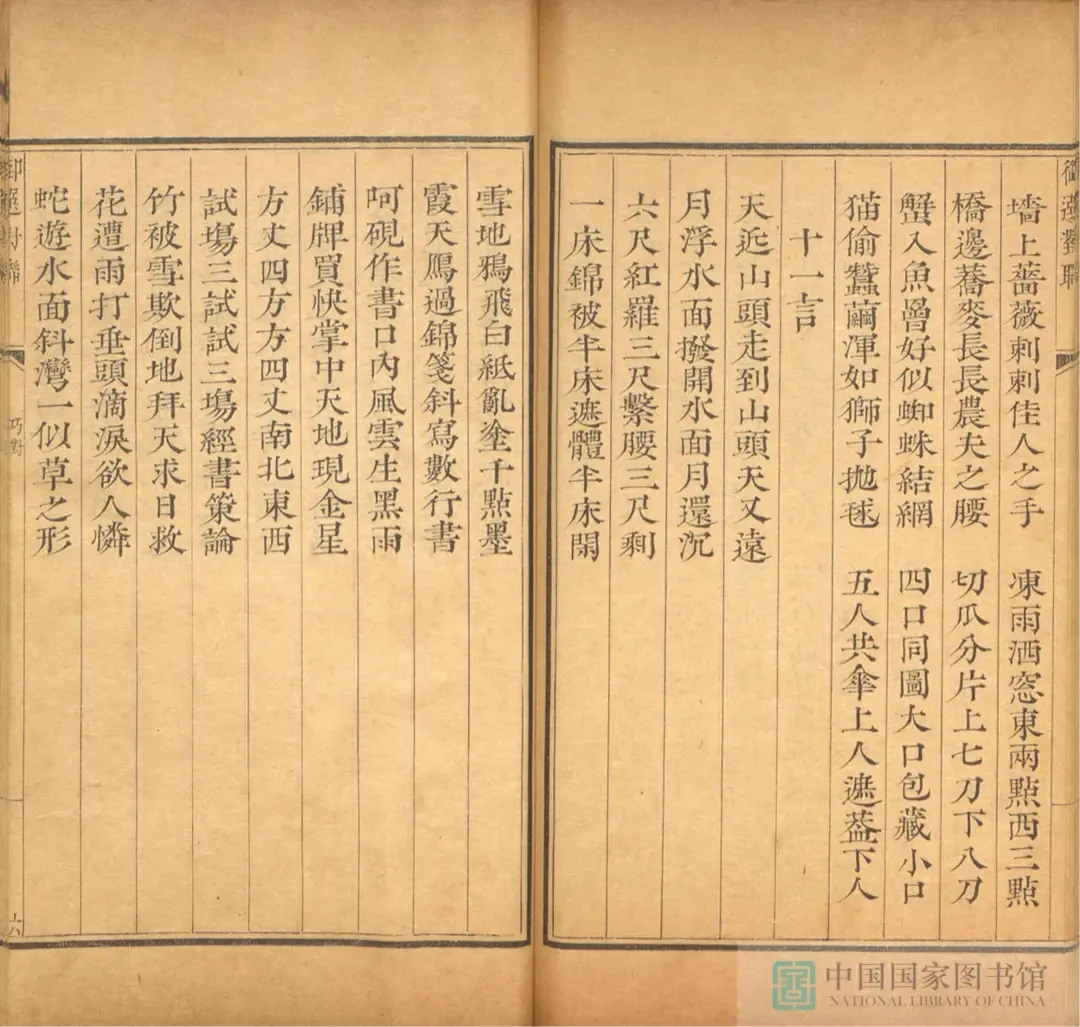 墻上薔薇刺刺佳人之手　凍雨洒窓東兩點西三點
橋邊蕎麥長長農夫之腰　切瓜分片上七刀下八刀
蟹入魚罾好似蜘蛛結網　四口同圖大口包藏小口
猫偷蠶繭渾如獅子拋毬　五人共傘上人遮葢下人
十一言
天近山頭走到山頭天又遠
月浮水面撥開水面月還沉
六尺紅羅三尺繫腰三尺剩
一床錦被半床遮體半床閑
雪地鴉飛白紙亂塗千點墨
霞天鴈過錦箋斜寫數行書
呵硯作書口內風雲生黑雨
鋪牌買快掌中天地現金星
方丈四方方四丈南北東西
試塲三試試三塲經書策論
竹被雪欺倒地拜天求日救
花遭雨打垂頭滴淚欲人憐
蛇遊水面斜灣一似草之形
御選對聯
巧對
六
中国国家图书馆
NATIONAL LIBRARY OF CHINA